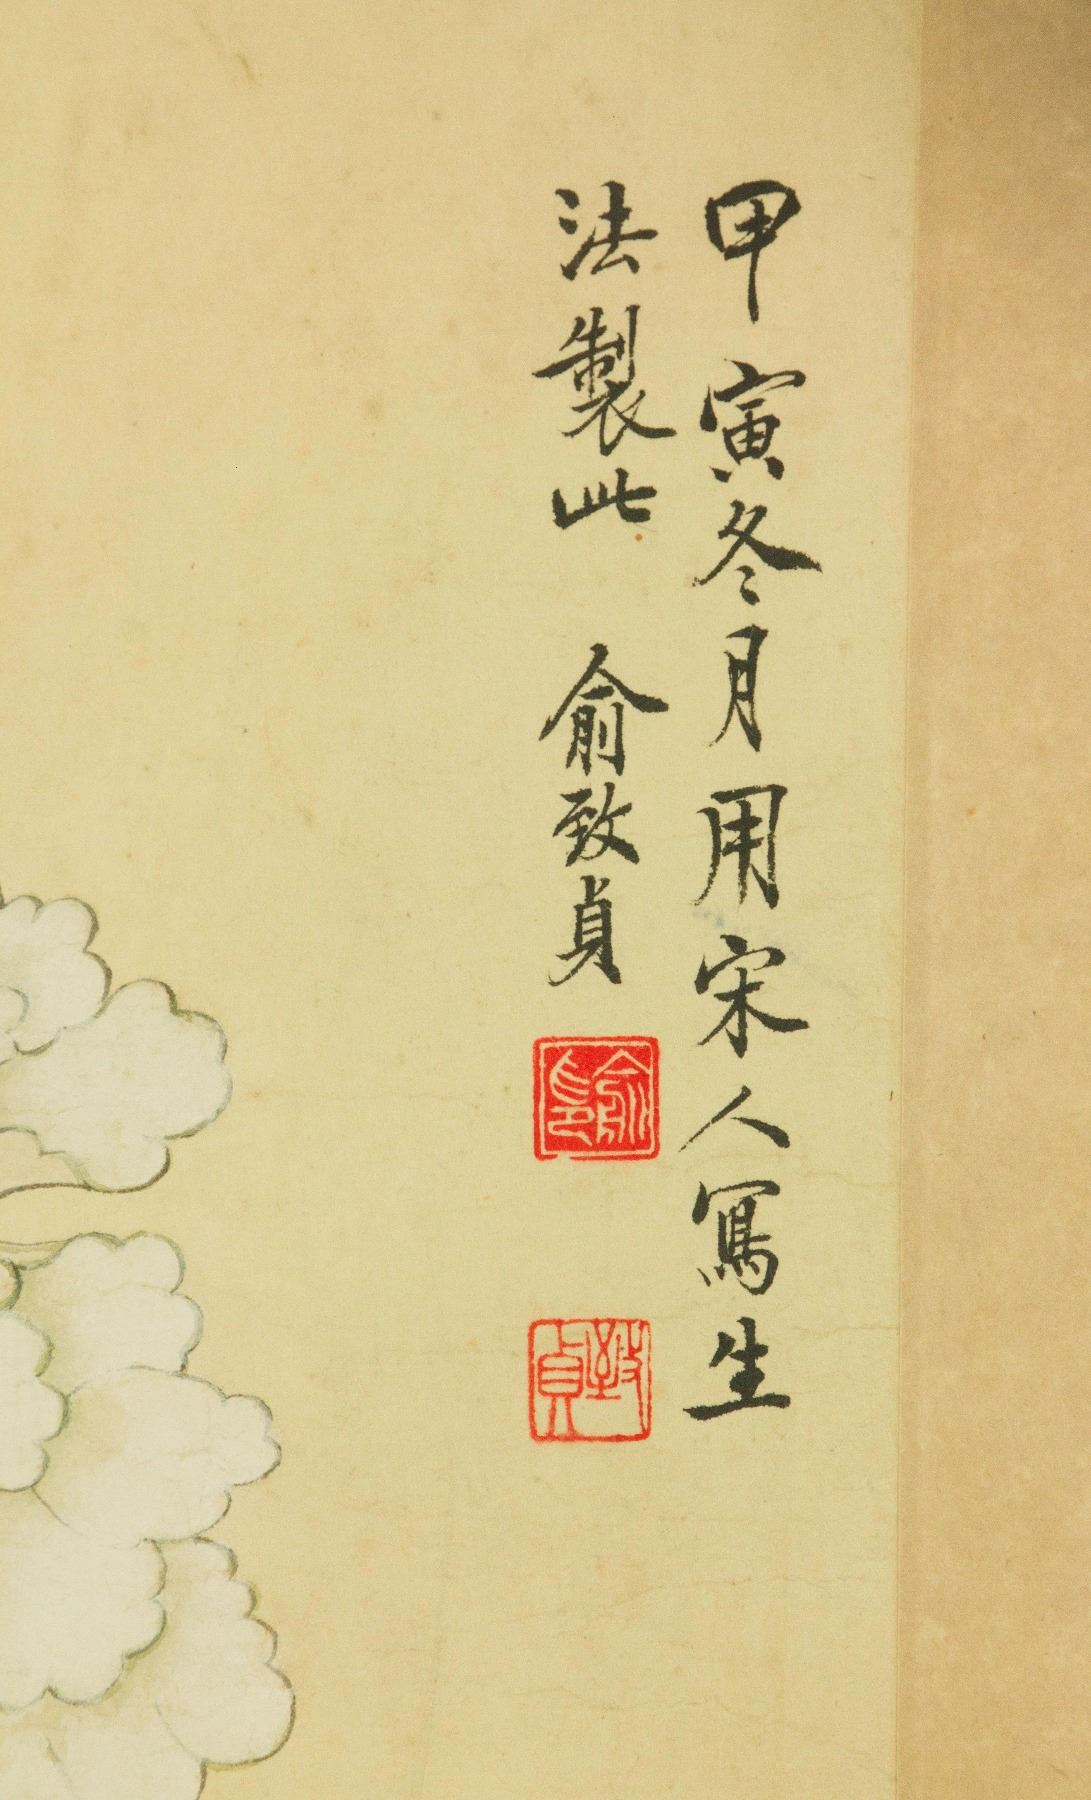 甲寅冬月用宋人寫生
法製此 俞致貞
俞
致貞